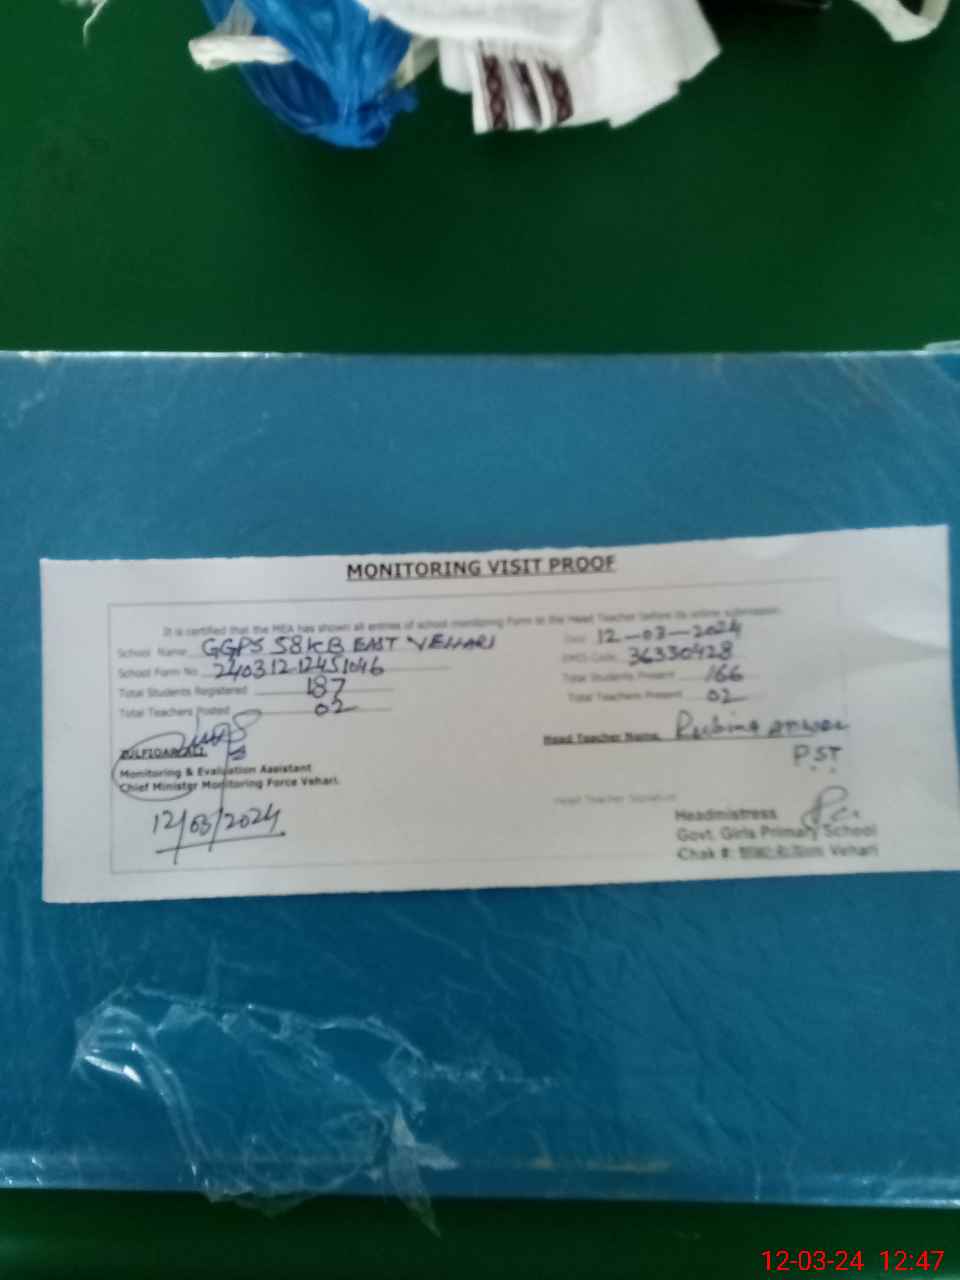 MONITORING VISIT PROOF
It is certified that the MEA has shown all entries of school monitoring Form to the Head Teacher before its online submission
School Name GGPS 58KB EAST VEHARI
Date 12-03-2024
School Form No. 24031212451046
EMIS Code 36330428
Total Students Registered 187
Total Students Present 166
Total Teachers Posted 02
Total Teachers Present 02
ZULFIQAR ALI
Head Teacher Name Rubina
PST
Monitoring & Evaluation Assistant
Chief Minister Monitoring Force Vehari.
12/03/2024
Head Teacher Signature
Headmistress
Govt. Girls Primary School
Chak #: Vehari
12-03-24 12:47